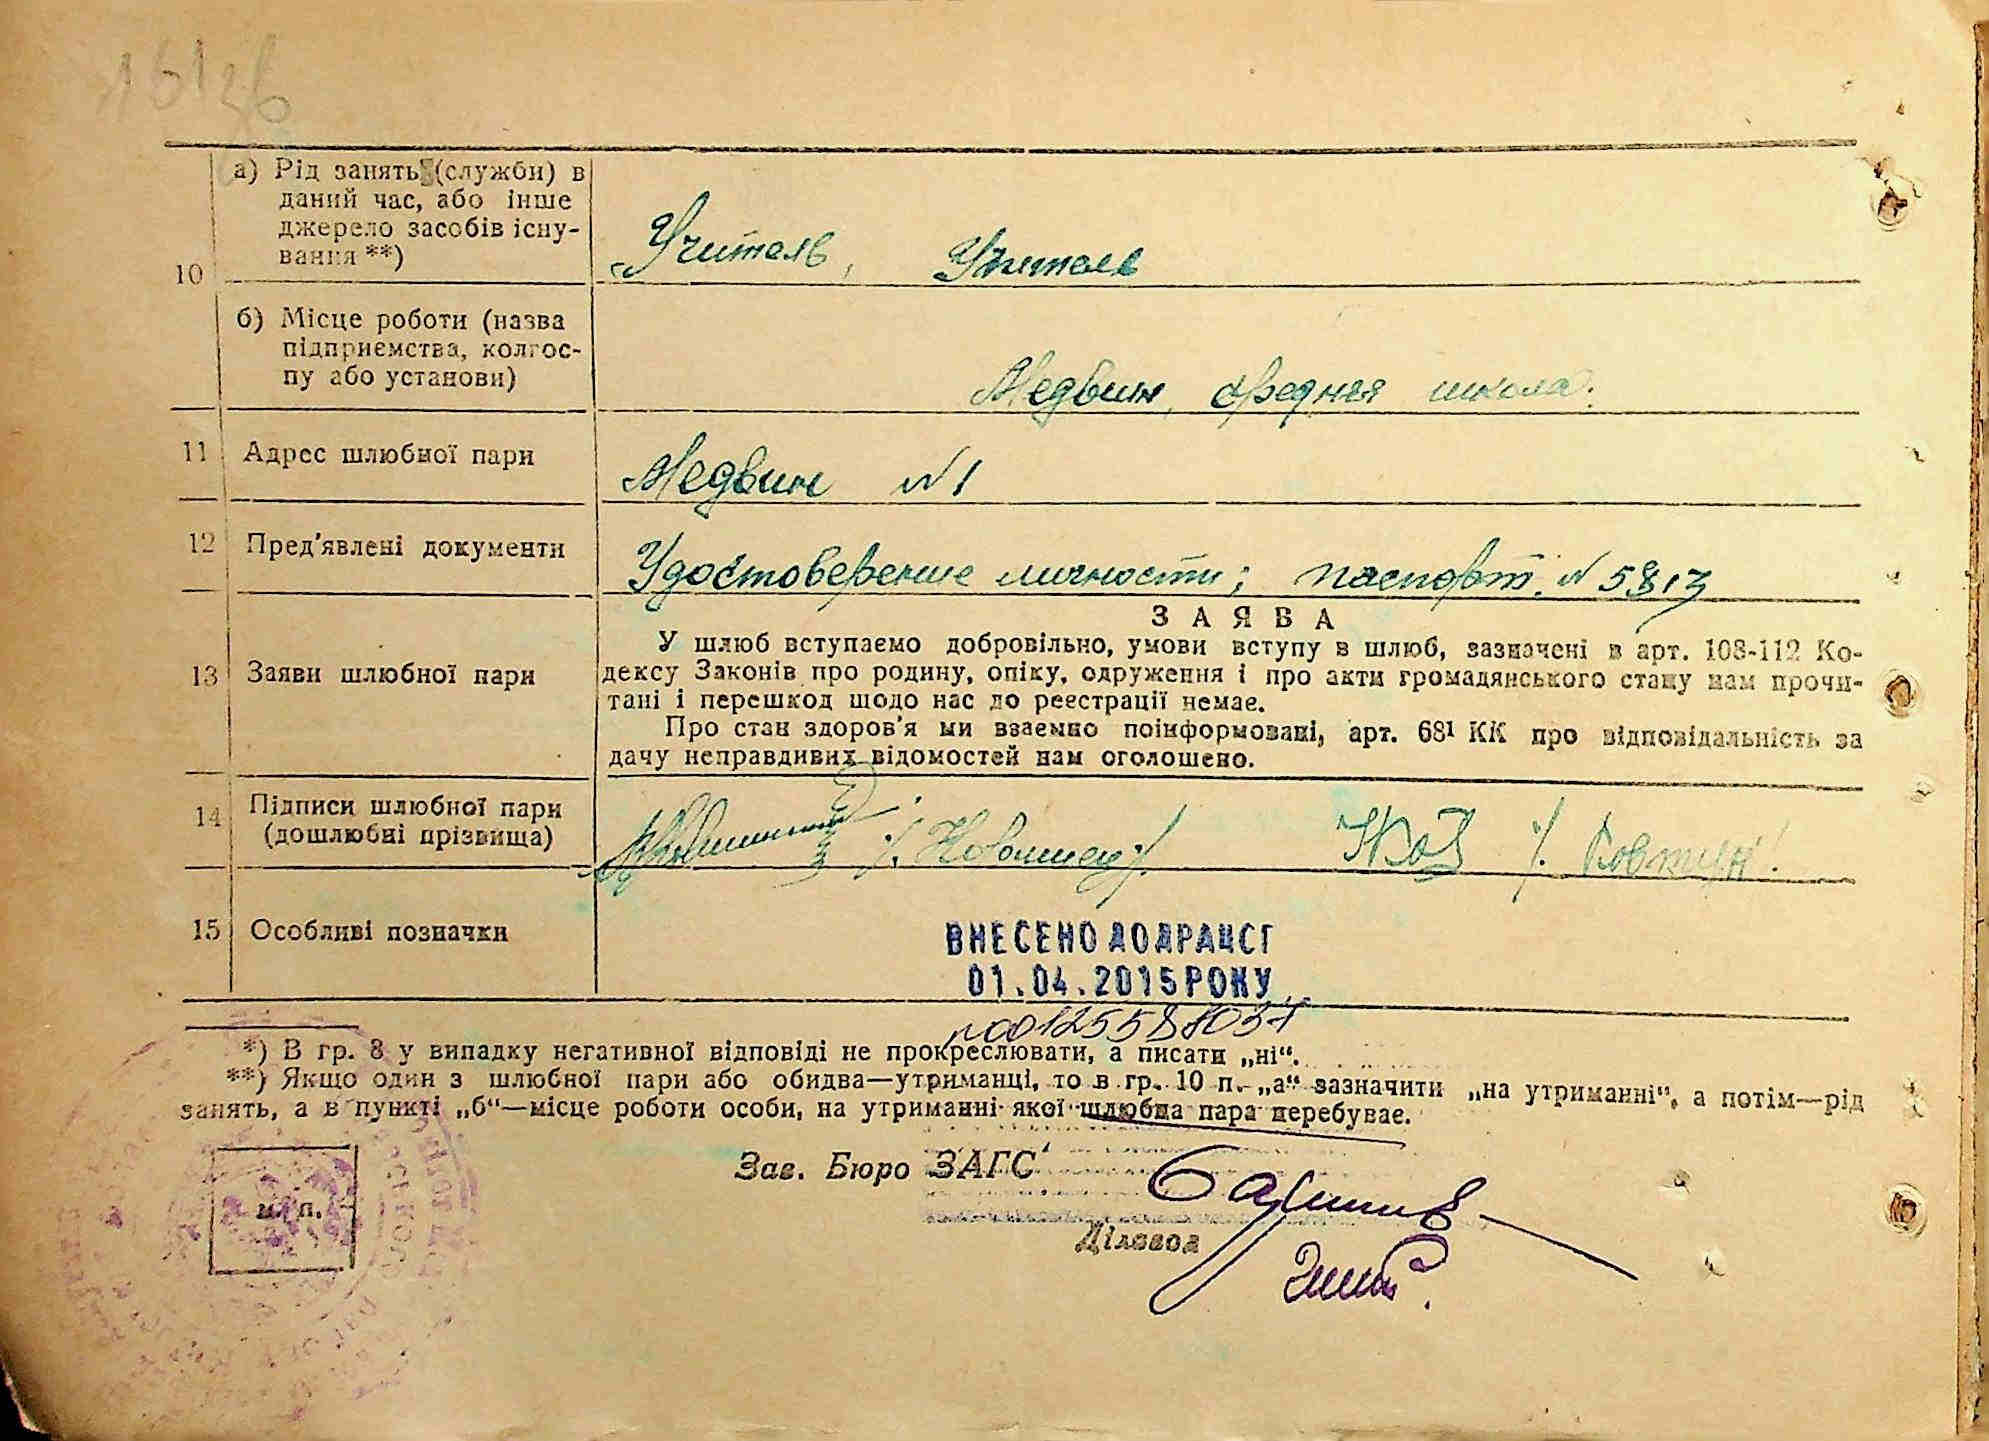 10
а) Рід занять (служби) в
даний час, або інше
джерело засобів існу-
вання **)
Учитель, Учитель
б) Місце роботи (назва
підприємства, колгос-
пу або установи)
Медвин, средняя школа.
11 Адрес шлюбної пари
Медвин №1
12 Пред'явлені документи
Удостоверение личности; паспорт. № 5813
13 Заяви шлюбної пари
ЗАЯВА
У шлюб вступаємо добровільно, умови вступу в шлюб, зазначені в арт. 108-112 Ко-
дексу Законів про родину, опіку, одруження і про акти громадянського стану нам прочи-
тані і перешкод щодо нас до реєстрації немає.
Про стан здоров'я ми взаємно поінформовані, арт. 68¹ КК про відповідальність за
дачу неправдивих відомостей нам оголошено.
14 Підписи шлюбної пари
(дошлюбні прізвища)
15 Особливі позначки
ВНЕСЕНО ДО ДРАЦСГ
01.04.2015 РОКУ
*) В гр. 8 у випадку негативної відповіді не прокреслювати, а писати „ні“.
**) Якщо один з шлюбної пари або обидва—утриманці, то в гр. 10 п. „а“ зазначити „на утриманні“, а потім—рід
занять, а в пункті „б“—місце роботи особи, на утриманні якої шлюбна пара перебуває.
Зав. Бюро ЗАГС
м. п.
Діловод